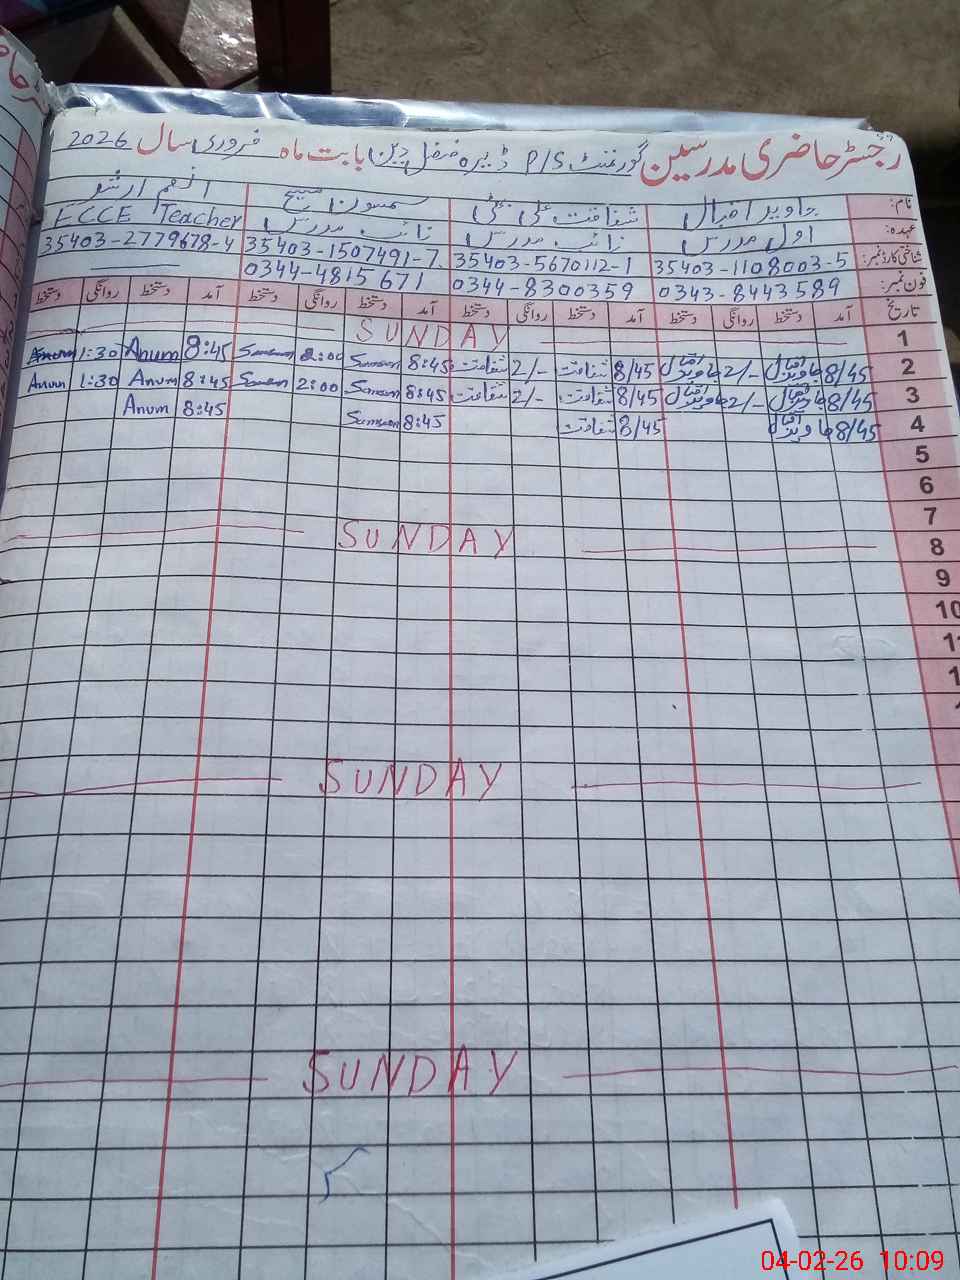 رجسٹر حاضری مدرسین گورنمنٹ P/S ڈیرہ فضل دین بابت ماہ فروری سال 2026
نام: جاوید اقبال شفاقت علی بھٹی سمسون مسیح انعم ارشو
عہدہ: اول مدرس نائب مدرس نائب مدرس ECCE Teacher
شناختی کارڈ نمبر: 35403-1108003-5 35403-5670112-1 35403-1507491-7 35403-2779678-4
فون نمبر: 0343-8443589 0344-8300359 0344-4815671
تاریخ آمد دستخط روانگی دستخط آمد دستخط روانگی دستخط آمد دستخط روانگی دستخط آمد دستخط روانگی دستخط
1 SUNDAY
2 8/45 جاوید اقبال 2/- جاوید اقبال 8/45 شفاقت 2/- شفاقت 8:45 Samson 2:00 Samson 8:45 Anum 1:30 Anum
3 8/45 جاوید اقبال 2/- جاوید اقبال 8/45 شفاقت 2/- شفاقت 8:45 Samson 2:00 Samson 8:45 Anum 1:30 Anum
4 8/45 جاوید اقبال 8/45 شفاقت 8:45 Samson 8:45 Anum
5
6
7
8 SUNDAY
9
10
11
SUNDAY
SUNDAY
04-02-26 10:09